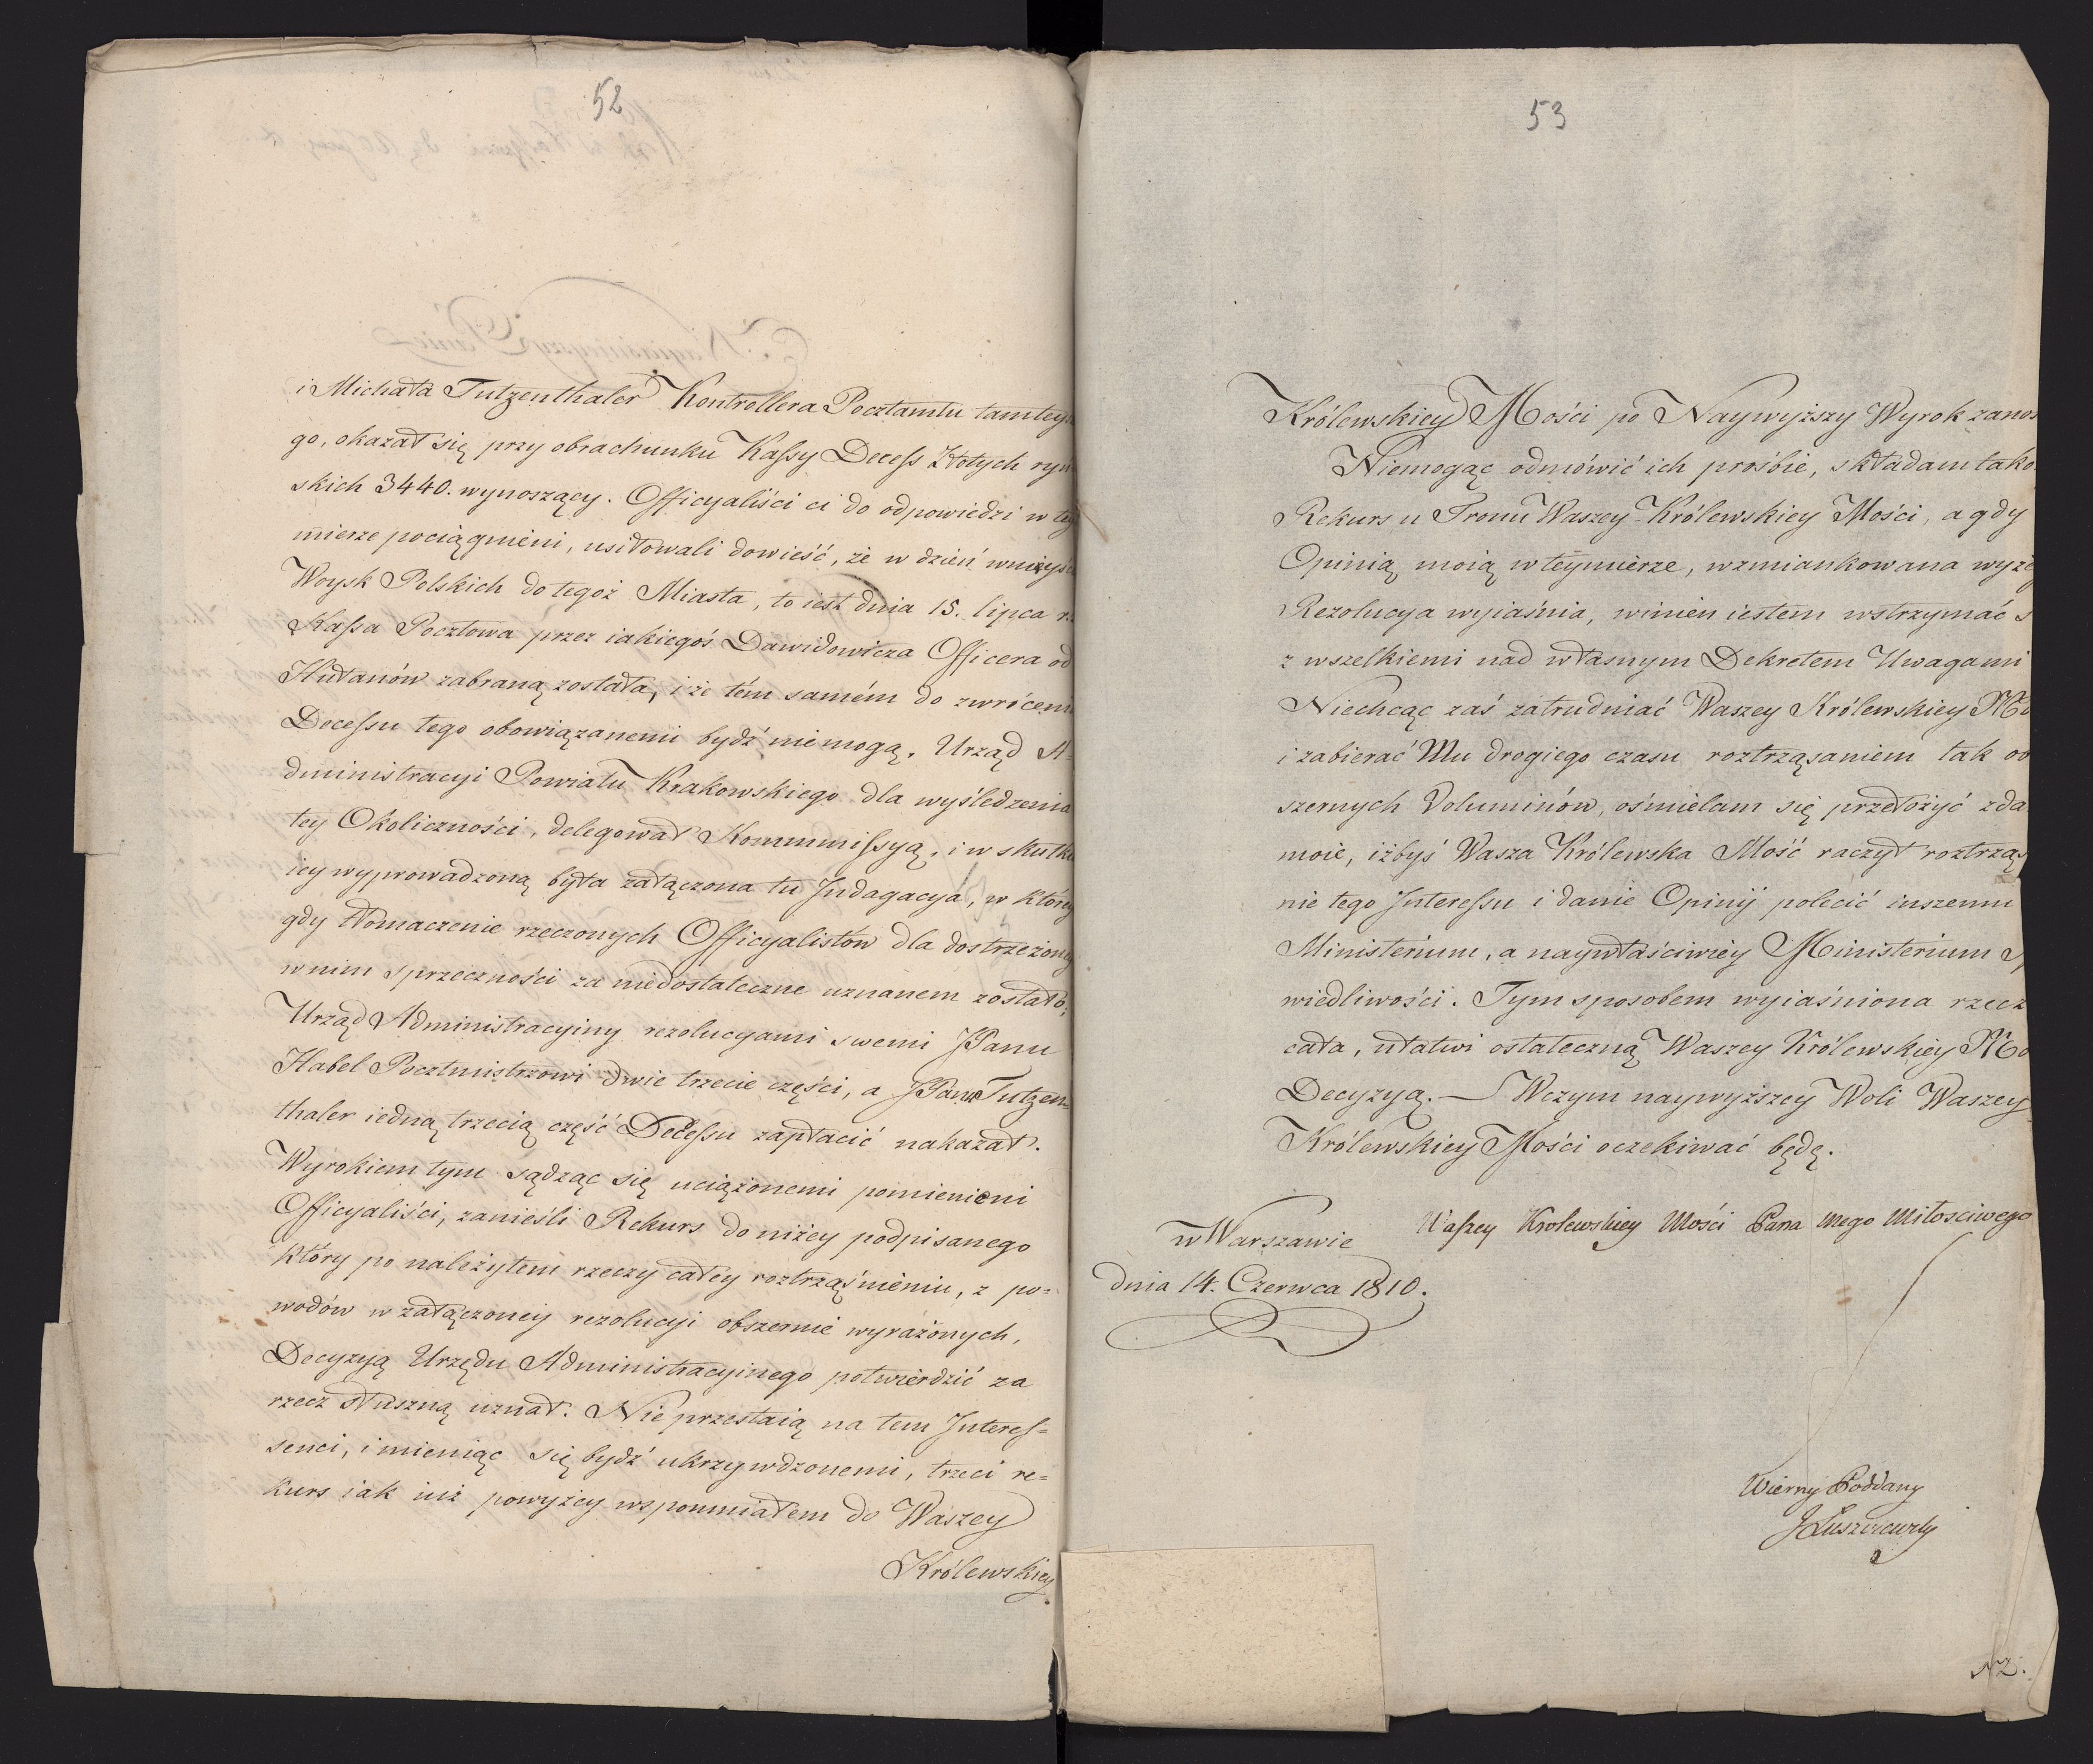 52
i Michała Tutzenthaler Kontrollera Pocztamtu tamtey
go, okazał się przy obrachunku Kaſsy Deceſs Złotych ryn
skich 3440. wynoszący. Officyaliści ci do odpowiedzi w tey
mierze pociągnieni, usiłowali dowieść, że w dzień wniyścia
Woysk Polskich do tegoż Miasta, to iest dnia 15. lipca r.
Kaſsa Pocztowa przez iakiegoś Dawidowicza Officera od
Hułanów zabraną została, i że tém samém do zwróceni
Deceſsu tego obowiązanemi bydź niemogą. Urząd A=
dministracyi Powiatu Krakowskiego dla wyśledzenia
tey Okoliczności, delegował Kommmiſsyą, i w skutku
iey wyprowadzoną była załączona tu Indagacya, w którey
gdy tłomaczenie rzeczonych Officyalistów dla dostrzeżoney
w nim sprzeczności za niedostateczne uznanem zostało;
Urząd Administracyiny rezolucyami swemi JPanu
Habel Pocztmistrzowi dwie trzecie części, a JPanu Tutzen=
thaler iedną trzecią część Deceſsu zapłacić nakazał.
Wyrokiem tym sądząc się uciążonemi pomienieni
Officyaliści, zanieśli Rekurs do niżey podpisanego
który po należytem rzeczy całey roztrząśnieniu, z po=
wodów w załączoney rezolucyi obszernie wyrażonych,
Decyzyą Urzędu Administracyinego potwierdzić za
rzecz słuszną uznał. Nie przestaią na tem Intereſ=
senci, i mieniąc się bydź ukrzywdzonemi, trzeci re=
kurs iak iuż powyżey wspomniałem do Waszey
Królewskiey
53
Królewskiey Mości po Naywyższy Wyrok zanos
Niemogąc odmówić ich prośbie, składam tako
Rekurs u Tronu Waszey Królewskiey Mości, a gdy
Opinią moią w teymierze, wzmiankowana wyżey
Rezolucya wyiaśnia, winien iestem wstrzymać s
z wszelkiemi nad własnym Dekretem Uwagami
Niechcąc zaś zatrudniać Waszey Królewskiey Mo
i zabierać Mu drogiego czasu roztrząsaniem tak ob
szernych Voluminów, ośmielam się przełożyć zda
moie, iżbyś Wasza Królewska Mość raczył roztrząs
nie tego Intereſsu i danie Opinij polecić inszemu
Ministerium, a naywłaściwiéy Ministerium Sp
wiedliwości. Tym sposobem wyiaśniona rzecz
cała, ułatwi ostateczną Waszey Królewskiey Mo
Decyzyą. — W czym naywyższey Woli Waszey
Królewskiey Mości oczekiwać będę.
Waſzey Krolewskiey Mości Pana Mego Miłosciwego
w Warszawie
dnia 14. Czerwca 1810.
Wierny Poddany
J Łuszczewsky